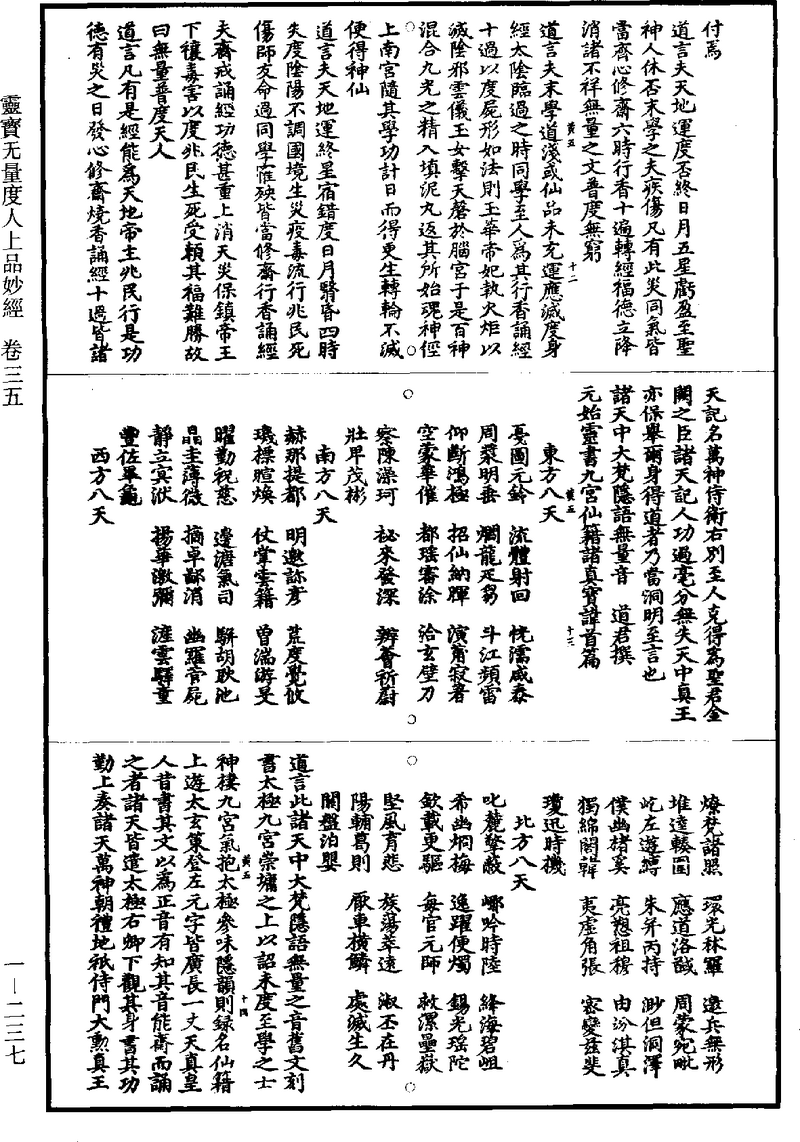 付焉
道言夫天地運度否終日月五星虧盈至聖
神人休否末學之夫疾傷凡有此災同氣皆
當齊心修齋六時行香十遍轉經福德立降
消諸不祥無量之文普度無窮
黃五
十二
道言夫末學道淺或仙品未充運應滅度身
經太陰臨過之時同學至人爲其行香誦經
十過以度屍形如法則玉華帝妃執火炬以
滅陰邪雲儀玉女擊天磬於腦宮于是百神
混合九光之精入填泥丸返其所始魂神徑
上南宮隨其學功計日而得更生轉輪不滅
便得神仙
道言夫天地運終星宿錯度日月腎昏四時
失度陰陽不調國境生災疫毒流行兆民死
傷師友命過同學罹殃皆當修齋行香誦經
夫齋戒誦經功德甚重上消天災保鎮帝王
下禳毒害以度兆民生死受賴其福難勝故
曰無量普度天人
道言凡有是經能爲天地帝主兆民行是功
德有災之日發心修齋燒香誦經十過皆諸
天記名萬神侍衛右別至人克得爲聖君金
闕之臣諸天記人功過毫分無失天中真王
亦保舉爾身得道者乃當洞明至言也
諸天中大梵隱語無量音　道君撰
元始靈書九宮仙籍諸真寶諱首篇
黃五
十三
東方八天
憂圖元鈴　流體射回　恍濡咸泰
周蒙明垂　爛龍疋芻　斗江頻雷
仰斷鴻極　招仙納暉　演甯寂者
空蒙華催　都瑤審涂　洽玄壁刀
察陳澡珂　祕來發深　辨薈祈尉
壯早茂彬
南方八天
赫那提都　明邀詠彥　荒度覺攸
璣摽暄煥　仗掌雲籍　曾湍游旻
曜勤稅慈　邊溏氣司　駢胡耿池
晶圭薄微　摘卓鄙消　幽羅亶屍
靜立冥洑　揚華激彌　漄雲驛童
豐佐畢龜
西方八天
燎梵諸照　環光林羅　遼兵無形
堆達輳圖　應道洛馘　周蒙宛毗
屹左遊縳　朱斧丙持　渺但洞渾
僕幽楮奚　亮愬祖穆　由汾淇真
獨綿閣韗　夷虛角張　密變茲斐
瓊迅時機
北方八天
叱麓擎蔽　哪吟時陸　絳海碧岨
希幽炯梅　逸躍便燭　錫光瑶陀
欽載更驅　每官元師　敕漯壘嶽
堅風育悲　族蕩萃遠　淑丕在丹
陽輔曷則　厭車橫鱗　處滅生久
開盤泊嬰
道言此諸天中大梵隱語無量之音舊文刻
書太極九宮崇墉之上以詔末度至學之士
黃五
十四
神棲九宮氣抱太極參味隱韻則録名仙籍
上遊太玄策登左元字皆廣長一丈天真皇
人昔書其文以爲正音有知其音能齋而誦
之者諸天皆遣太極右卿下觀其身書其功
勤上奏諸天萬神朝禮地祇侍門大勳真王
靈寶无量度人上品妙經　卷三五
一—二三七